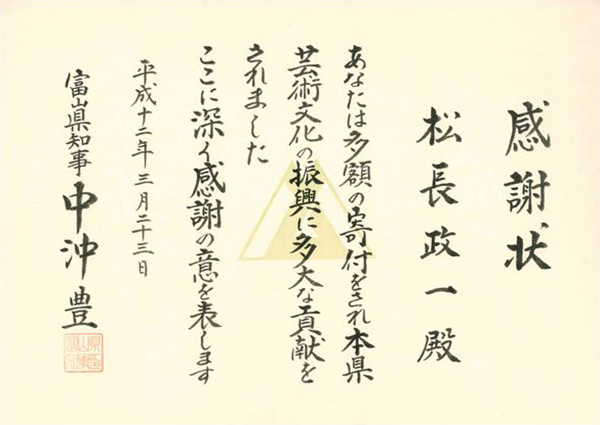 感謝状
松長政一殿
あなたは多額の寄付をされ本県
芸術文化の振興に多大な貢献を
されました
ここに深く感謝の意を表します
平成十二年三月二十三日
富山県知事 中沖豊